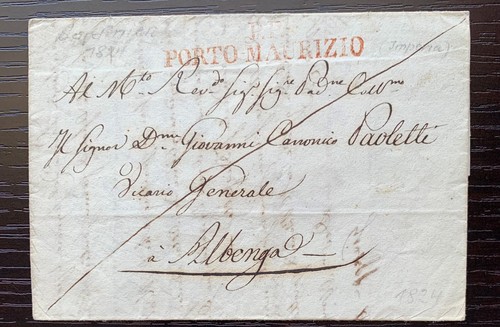 PORTO-MAURIZIO
(Imperia)
Al M.to Rev.do Sig.r Sig.re Pad.ne Col.mo
Il Signor D.n Giovanni Canonico Paoletti
Vicario Generale
à Albenga
1824